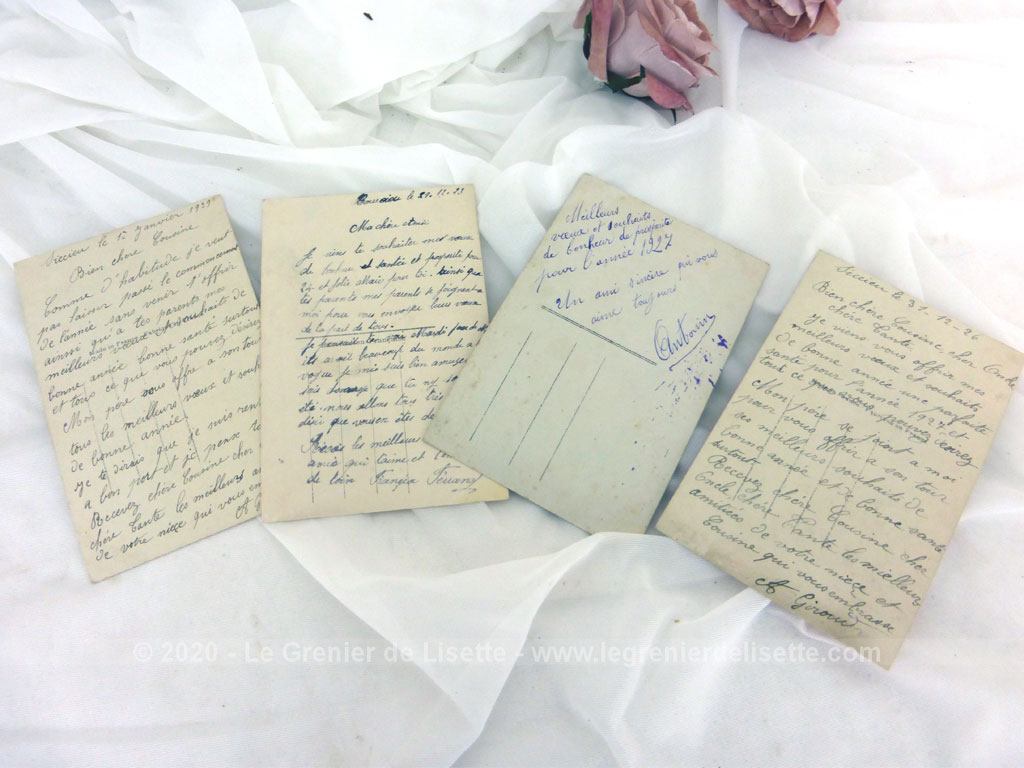 Siccieu le 15 Janvier 1929
Bien chère Cousine
Comme d'habitude je veut
pas laisser passé le commencement
de l'année sans venir t'offrir
ainsi qu'a tes parents mes
meilleurs voeux et souhaits de
bonne année bonne santé surtout
et tous ce que vous pouvez désirez
Mon père vous offre a son tour
tous les meilleurs voeux et souhaits
de bonne année
je te dirais que je suis
a bon port et je pense
Recevez chère Cousine cher
chère Tante les meilleurs
de votre nièce qui vous
le 21.12.23
Ma chère amie
Je viens te souhaiter mes voeux
de bonheur et santée et prospérité pour
24 et plus Marie pour toi. ainsi que
tes parents mes parents se joignent a
moi pour vous envoyer leurs voeux
de la part de tous.
Mardi
beaucoup du monde a
vogue je mis suis bien amuser
les meilleurs
amie qui t'aime et
de loin
Meilleurs
voeux et souhaits
de bonheur de prospérité
pour l'année 1927
Un ami sincère qui vous
aime toujours
Antonin
Siccieu le 31-12-26
Bien chère Cousine cher Oncle
chère Tante
Je viens vous offrir mes
meilleurs voeux et souhaits
de bonne année une parfaite
santé pour l'année 1927 et
tout ce que vous pouvez désirez
Mon père se joint a moi
pour vous offrir a son tour
ses meilleurs souhaits de
bonne année et de bonne santé
surtout
Recevez chère Cousine cher
Oncle chère Tante les meilleurs
amitiés de votre nièce et
Cousine qui vous embrasse
A Giroud
© 2020 - Le Grenier de Lisette - www.legrenierdelisette.com